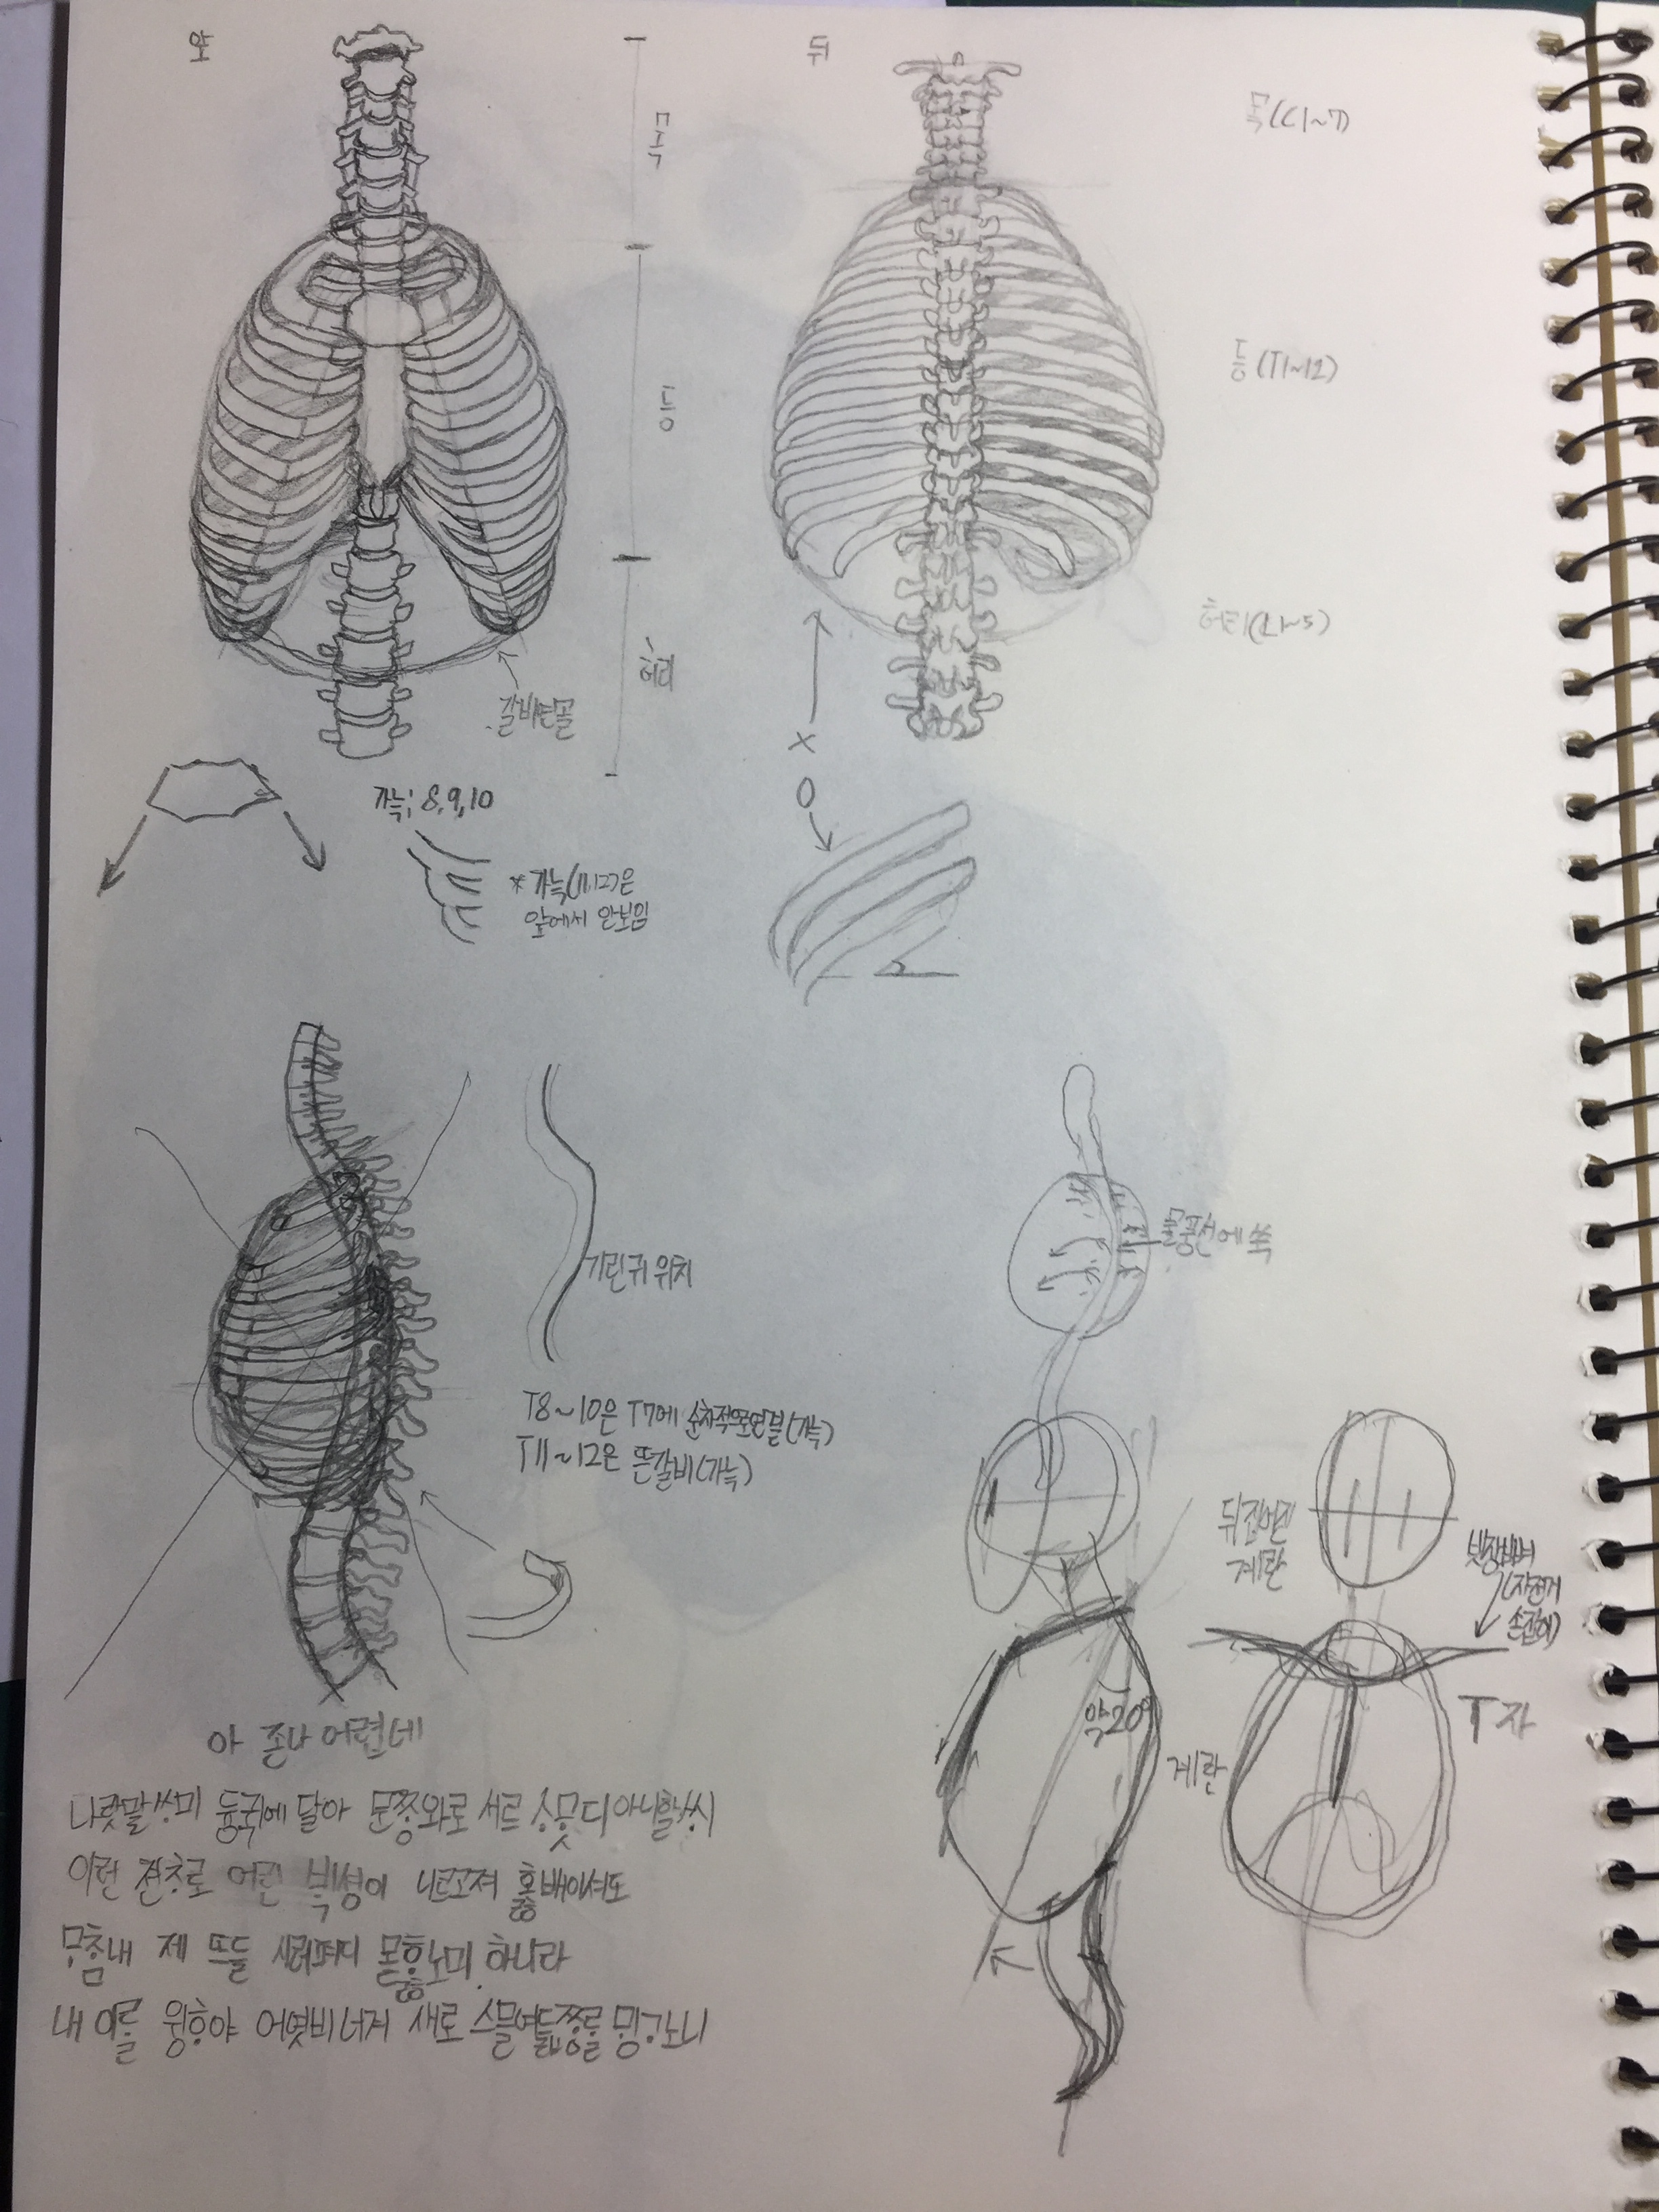 앞
뒤
목
목(C1~7)
등
등(T1~12)
허리
허리(L1~5)
갈비연골
X
O
가늑; 8,9,10
*가늑(11,12)은
앞에서 안보임
기린귀 위치
물풍선에 쏙
T8~10은 T7에 순차적으로연결(가늑)
T11~12은 뜬갈비(가늑)
뒤집어진
계란
빗장뼈
(자전거
손잡이)
약20°
계란
T자
아 존나 어렵네
나랏말ᄊᆞ미 듕귁에 달아 문ᄍᆞᆼ와로 서르 ᄉᆞᄆᆞᆺ디아니할ᄊᆞㅣ
이런 젼ᄎᆞ로 어린 ᄇᆡᆨ셩이 니르고져 홇배이셔도
ᄆᆞᄎᆞᆷ내 제 ᄠᅳ들 시러펴디 몯ᄒᆞᇙ노미 하니라
내 이ᄅᆞᆯ 윙ᄒᆞ야 어엿비너겨 새로 스믈여듧ᄍᆞᆼᄅᆞᆯ ᄆᆡᇰᄀᆞ노니